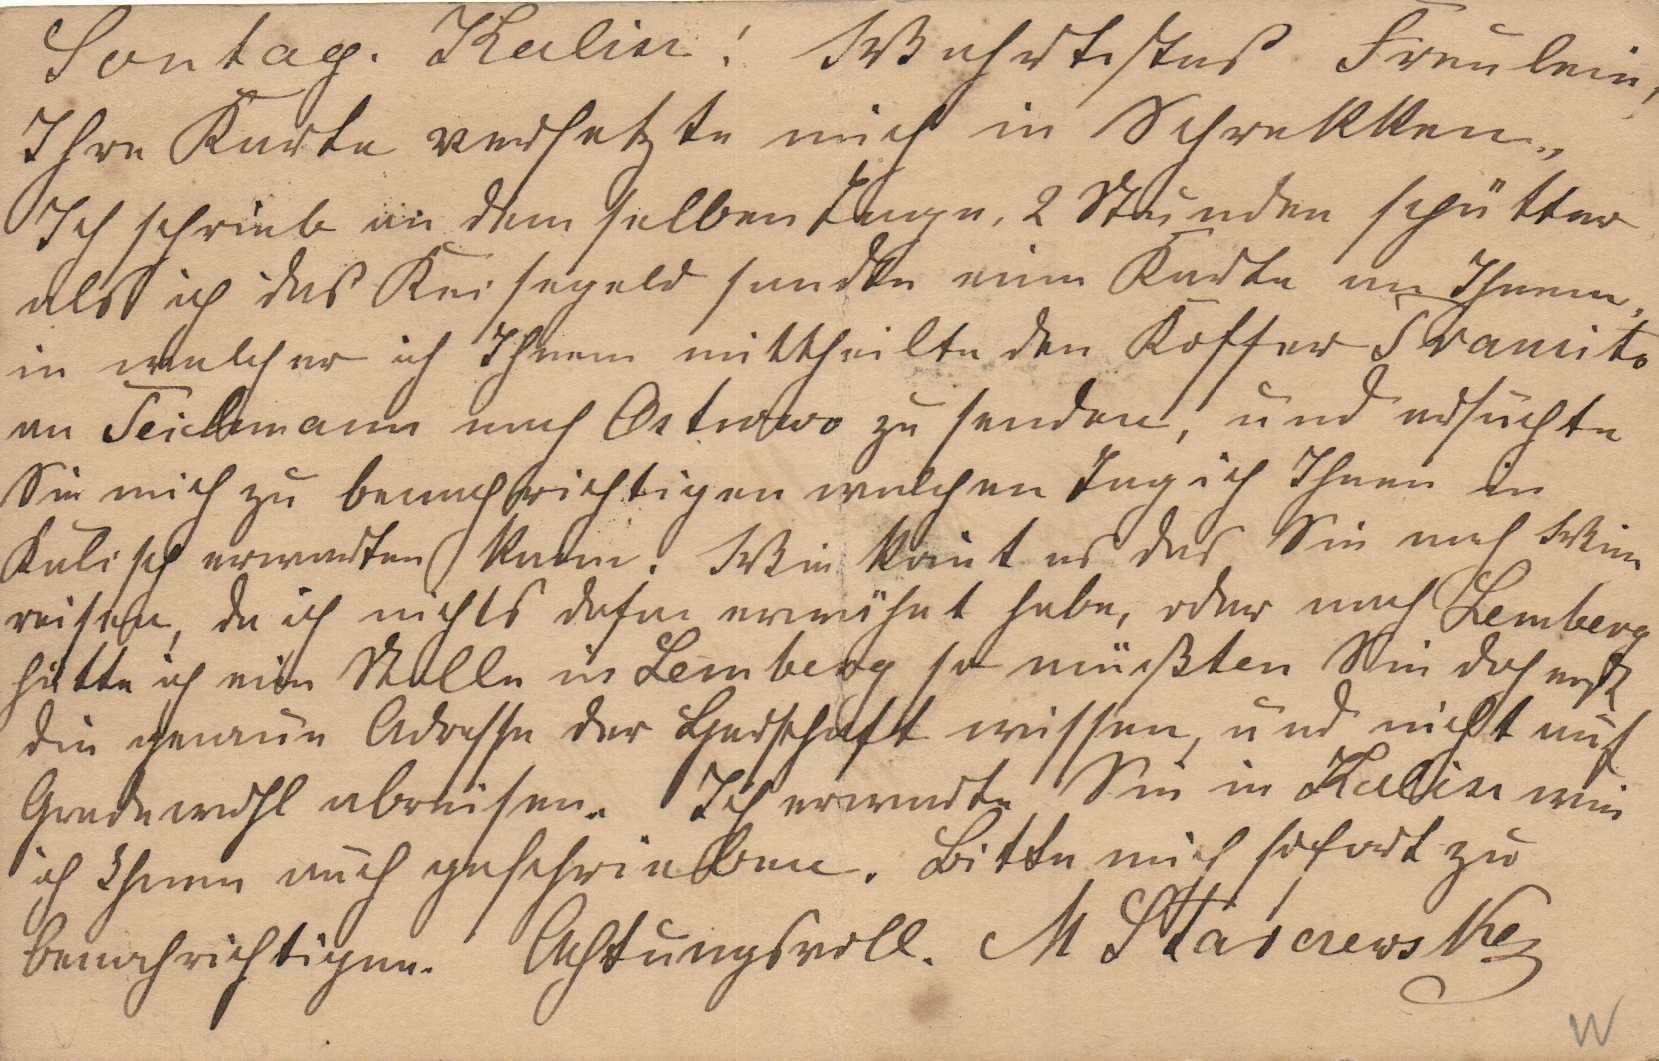 Sontag. Kalisz! Wehrtestes Freulein,
Ihre Karte versetzte mich in Schrekken.,
Ich schrieb an dem selben Tage, 2 Stunden spätter
als ich das Reisegeld sandte eine Karte an Ihnen,
in welcher ich Ihnen mittheilte den Koffer Transito
an Teichmann nach Ostrowo zu senden, und ersuchte
Sie mich zu benachrichtigen welchen Tag ich Ihnen in
Kalisch erwarten kann. Wie komt es das Sie nach Wien
reisen, da ich nichts dafon erwähnt habe, oder nach Lemberg
hätte ich eine Stelle in Lemberg so müßten Sie doch erst
die genaue Adresse der Herschaft wissen, und nicht auf
Gradewohl abreisen. Ich erwarte Sie in Kalisz wie
ich Ihnen auch geschrieben. Bitte mich sofort zu
benachrichtigen. Achtungsvoll. M
W